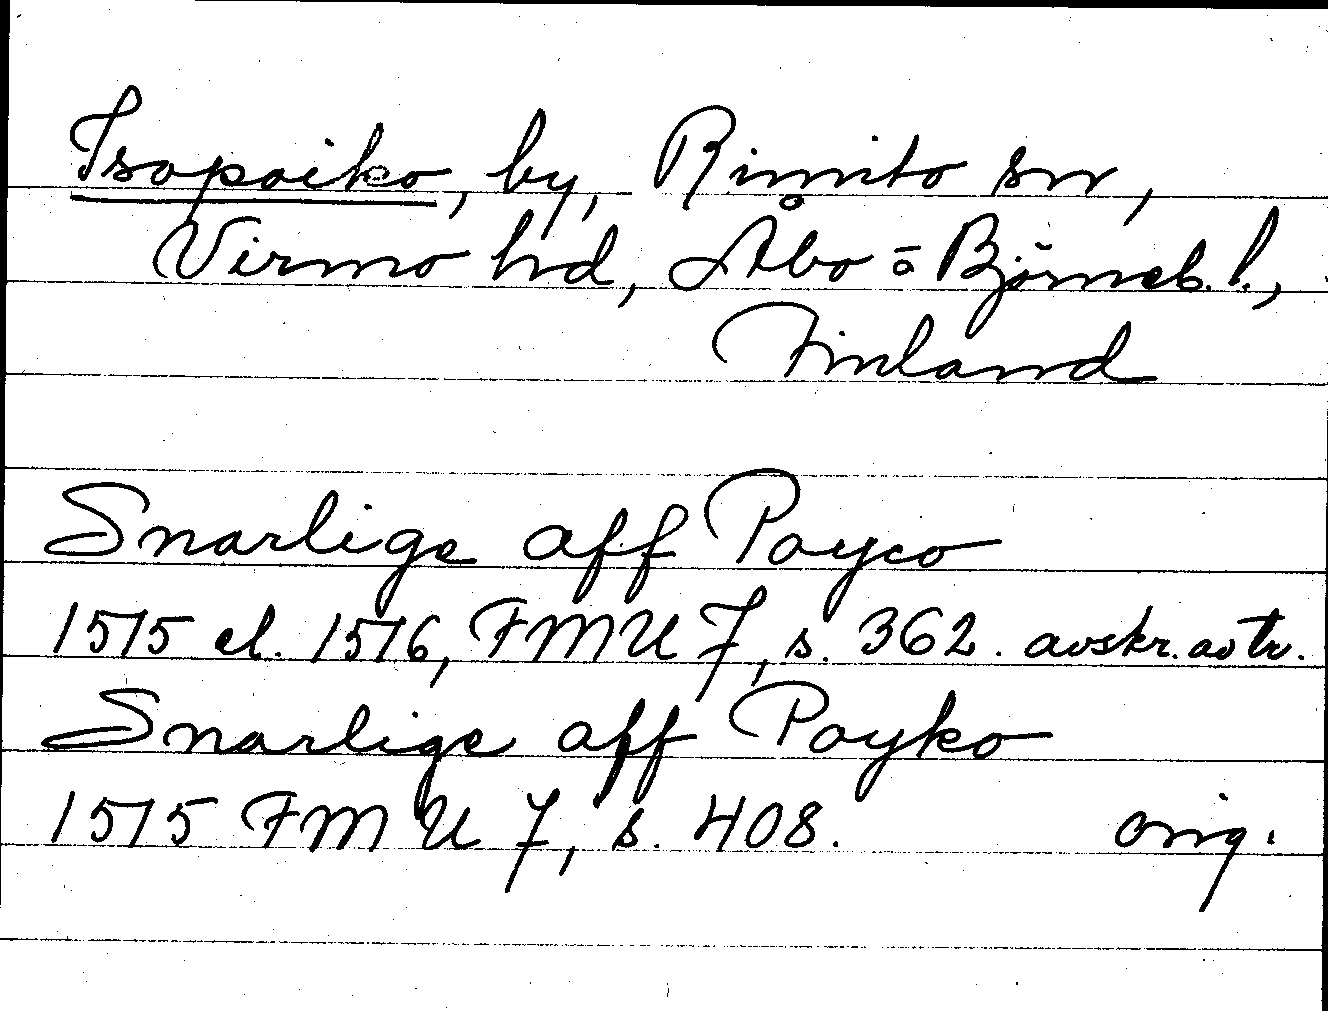 Isopoiko, by, Rimito sn,
Virmo hd, Åbo o Björneb. l.,
Finland
Snarlige aff Poyco
1515 el. 1516, FMU 7, s. 362. avskr. av tr.
Snarlige aff Poyko
1515 FMU 7, s. 408. orig.